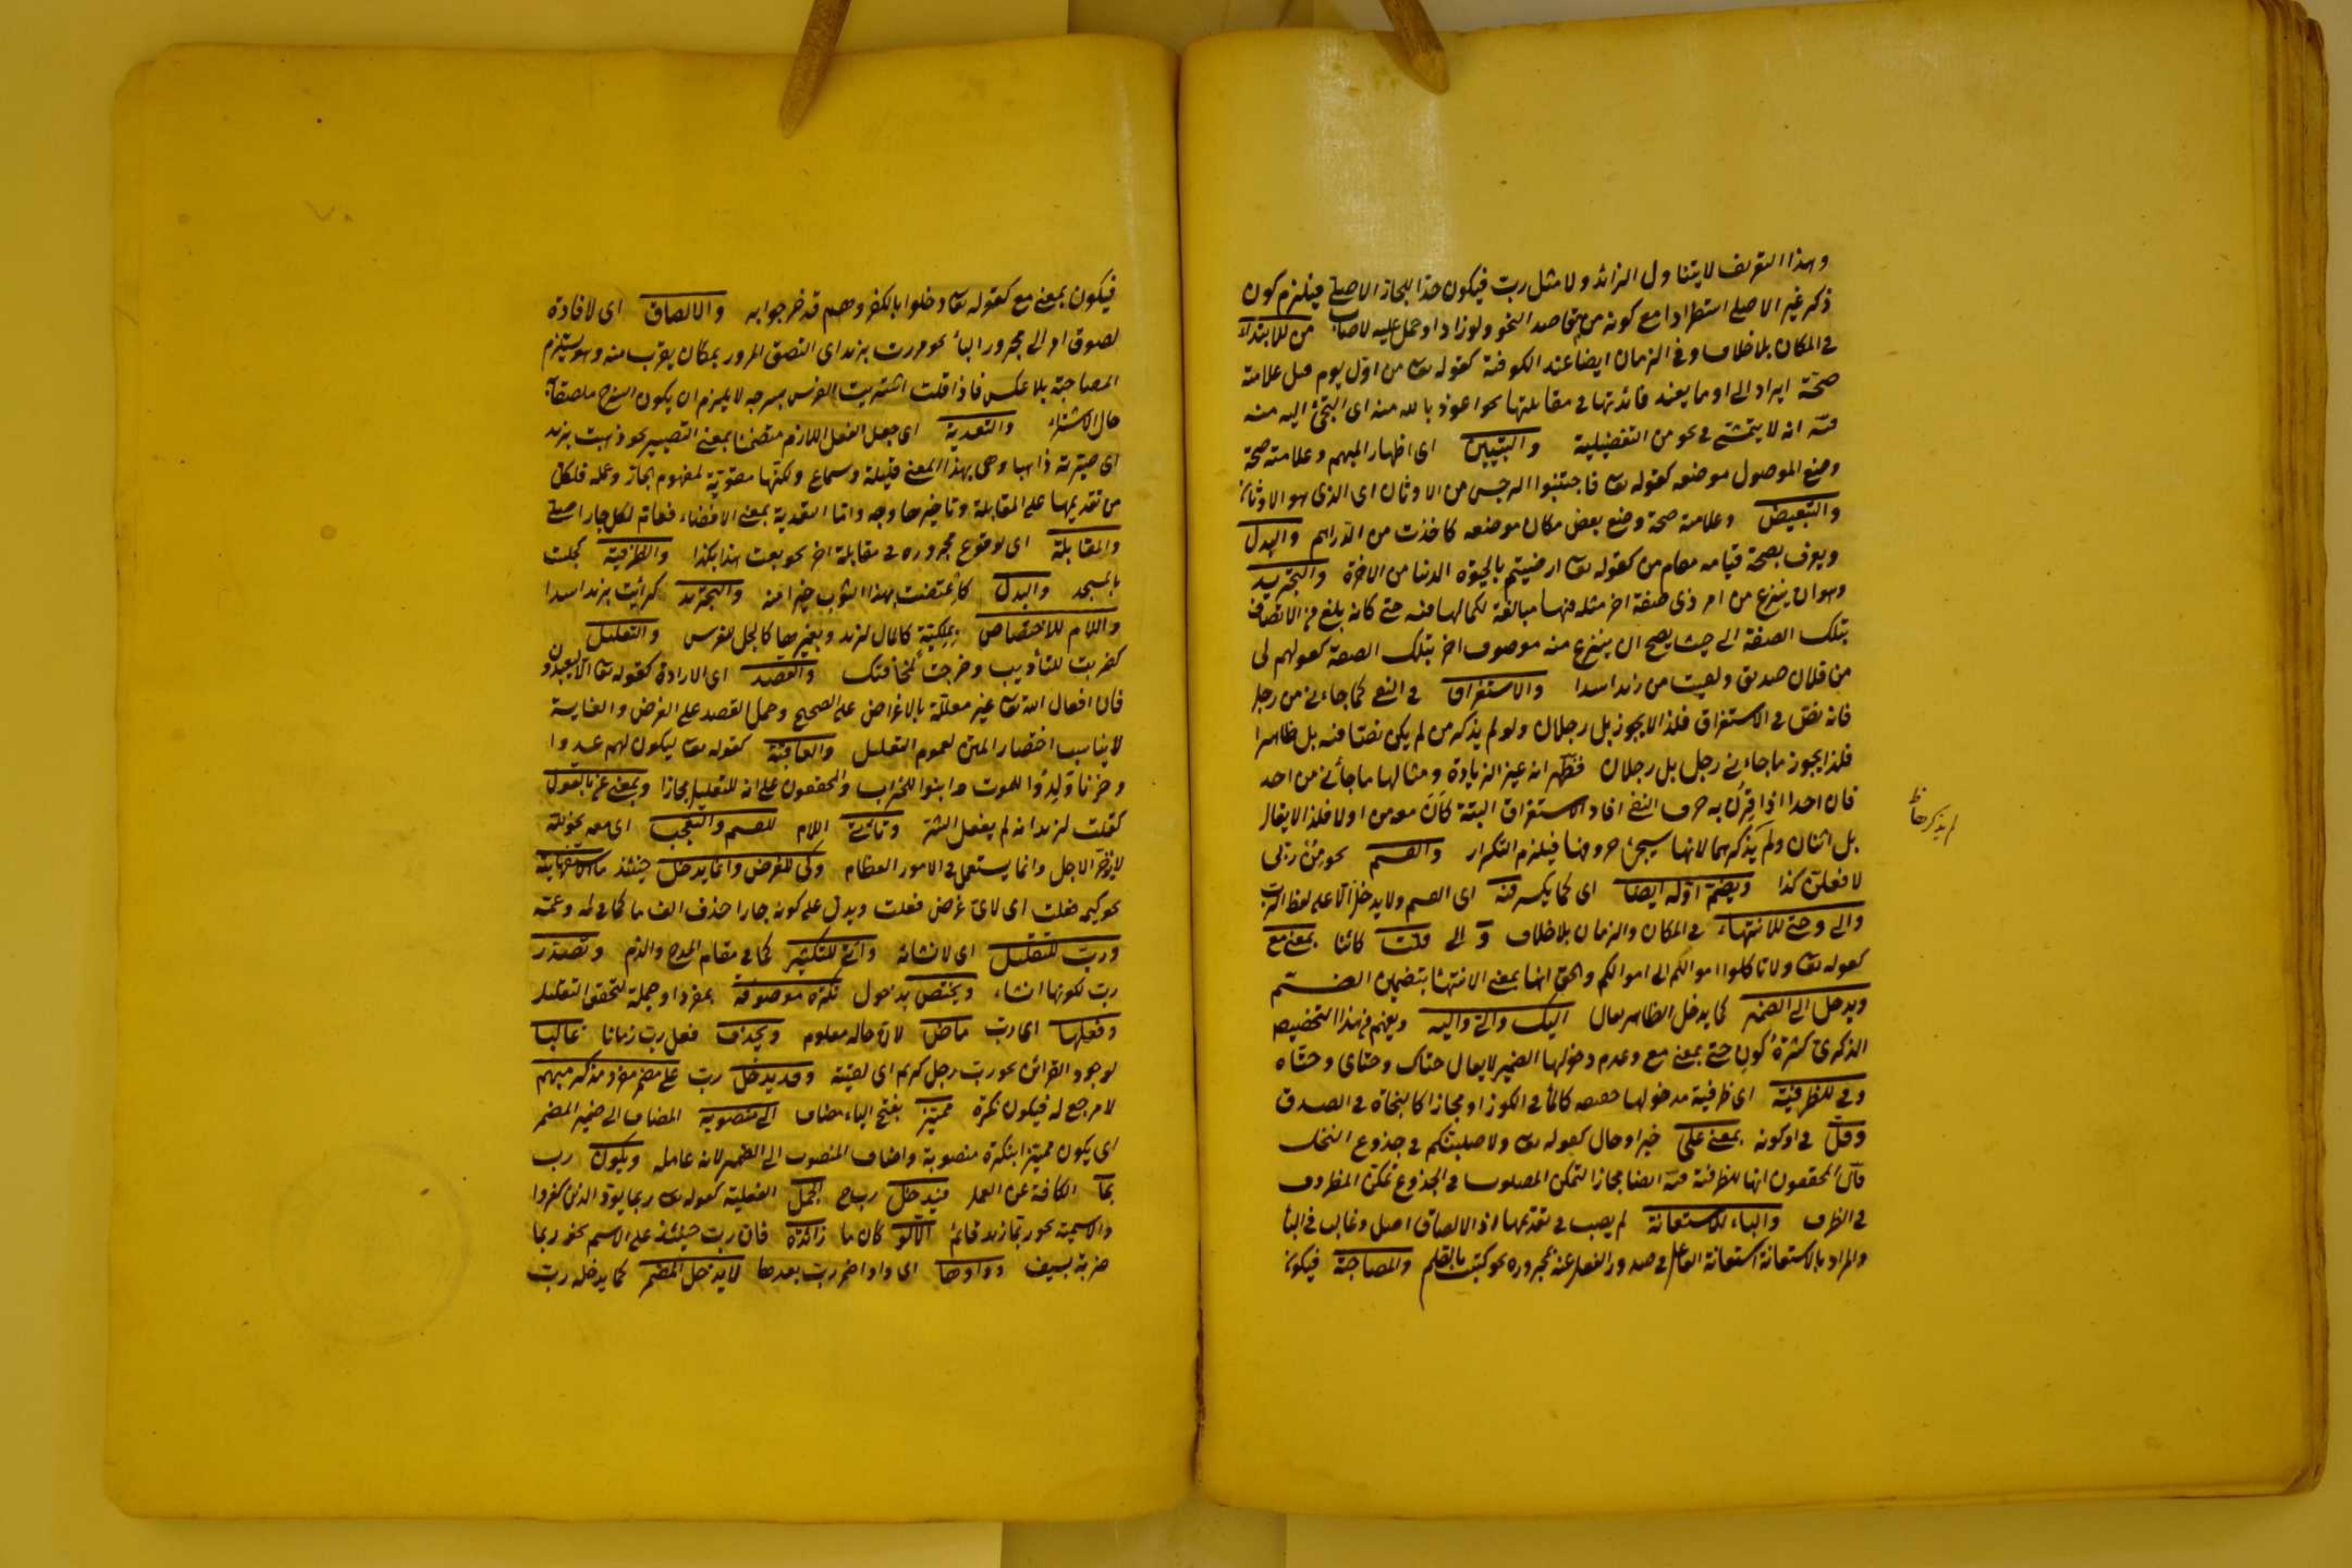 وهذا التعريف لا يتناول الزائد ولا مثل رب فيكون حذا للجار الاصلى فيلزم كون
ذكر غير الاصلى استطرادا مع كونه من مقاصد النحو ولو زاد او حمل عليه لاصاب من للابتداء
فى المكان بلا خلاف وفى الزمان ايضا عند الكوفية كقوله تعا من اول يوم قيل علامته
صحة ايراد الى او ما يفيد فائدتها فى مقابلتها نحو اعوذ بالله منه اى التجئ اليه منه
فيه انه لا يتمشى فى نحو من التفضيلية والتبيين اى اظهار المبهم وعلامته صحة
وضع الموصول موضعه كقوله تعا فاجتنبوا الرجس من الاوثان اى الذى هو الاوثان
والتبعيض وعلامته صحة وضع بعض مكان موضعه كاخذت من الدراهم والبدل
ويعرف بصحة قيامه مقام من كقوله تعا ارضيتم بالحيوة الدنيا من الاخرة والتجريد
وهو ان ينزع من امر ذى صفة اخر مثله فيها مبالغة لكمالها فيه حتى كانه بلغ من الاتصاف
بتلك الصفة الى حيث يصح ان ينزع منه موصوف اخر بتلك الصفة كقولهم لى
من فلان صديق ولقيت من زيد اسدا والاستغراق فى النفى كما جاءنى من رجل
فانه نص فى الاستغراق فلذا لا يجوز بل رجلان ولو لم يذكر من لم يكن نصا فيه بل ظاهرا
فلذا يجوز ما جاءنى رجل بل رجلان فظهر انه غير الزيادة ومثالها ما جائنى من احد
فان احدا اذا قرن به حرف النفى افاد الاستغراق البتة كان معه من او لا فلذا لا يقال
بل اثنان ولم يذكرهما لانها سيجئ حروفها فيلزم التكرار والقسم نحو من ربى
لم يذكرها ظ
لافعلن كذا ويضم اوله ايضا اى كما يكسر فيه اى القسم ولا يدخل الا على لفظ الرب
والى وحتى للانتهاء فى المكان والزمان بلا خلاف و الى قلت كائنا بمعنى مع
كقوله تعا ولا تاكلوا اموالكم الى اموالكم والحق انها بمعنى الانتها بتضمين الضم
ويدخل الى الضمير كما يدخل الظاهر يقال اليك والى واليه ويفهم من هذا التخصيص
الذكرى كثرة كون حتى بمعنى مع وعدم دخولها الضمير لا يقال حتاك وحتاى وحتاه
وفى للظرفية اى ظرفية مدخولها حقيقة كالماء فى الكوز او مجازا كالنجاة فى الصدق
وقل فى او كونه بمعنى على خيرا وحال كقوله تعا ولاصلبنكم فى جذوع النخل
قال المحققون انها للظرفية فيه ايضا مجازا لتمكن المصلوب فى الجذوع تمكن المظروف
فى الظرف والباء للاستعانة لم يصب فى تقديمها اذ الالصاق اصل وغالب فى البأ
والمراد بالاستعانة استعانة الفاعل فى صدور الفعل عنه بمجروره نحو كتبت بالقلم والمصاحبة فيكون
فيكون بمعنى مع كقوله تعا دخلوا بالكفر وهم قد خرجوا به والالصاق اى لافادة
لصوق امر الى مجرور البأ نحو مررت بزيد اى التصق المرور بمكان يقرب منه وهو يستلزم
المصاحبة بلا عكس فاذا قلت اشتريت الفرس بسرجه لا يلزم ان يكون السرج ملصقا به
حال الاشتراء والتعدية اى جعل الفعل اللازم متضمنا بمعنى التصيير نحو ذهبت بزيد
اى صيرته ذاهبا وهى بهذا المعنى قليلة وسماع ولكنها مقوية لمفهوم الجار وعمله فلكل
من تقديمها على المقابلة وتاخيرها وجه واما التعدية بمعنى الافضاء فعام لكل جار اصلى
والمقابلة اى لوقوع مجروره فى مقابلة اخر نحو بعت هذا بكذا والظرفية كجلت
بالمسجد والبدل كاعتضت بهذا الثوب خيرا منه والتجريد كرأيت بزيد اسدا
واللام للاختصاص بملكية كالمال لزيد وبغيرها كالجل للفرس والتعليل
كضربت للتأديب وخرجت لمخافتك والقصد اى الارادة كقوله تعا الا ليعبدون
فان افعال الله تعا غير معللة بالاغراض على الصحيح وحمل القصد على الغرض والغاية
لا يناسب اختصار المتن لعموم التعليل والعاقبة كقوله تعا ليكون لهم عدوا
وحزنا ولدوا للموت وابنوا للخراب والمحققون على انه للتعليل مجازا وبمعنى عن بالقول
كقلت لزيد انه لم يفعل الشر وتاتى اللام للقسم والتعجب اى معه نحو لله
لا يؤخر الاجل وانما يستعمل فى الامور العظام وكى للغرض وانما يدخل حينئذ ما الاستفهامية
نحو كيم فعلت اى لاى غرض فعلت ويدل على كونه جارا حذف الف ما كما فى لم وعم
ورب للتقليل اى لانشائه واتى للتكثير كما فى مقام المدح والذم وتصدر
رب لكونها انشاء ويختص بدخول نكرة موصوفة بمفرد او جملة لتحقق التقليل
وفعلها اى رب ماض لان حاله معلوم ويحذف فعل رب زمانا غالبا
لوجود القرائن نحو رب رجل كريم اى لقيته وقد يدخل رب على مضمر مفرد مذكر مبهم
لا مرجع له فيكون نكرة مميزا بفتح الياء مضاف الى منصوبه المضاف الى ضمير المضمر
اى يكون مميزا بنكرة منصوبة واضاف المنصوب الى الضمير لانه عامله ويكون رب
بما الكافة عن العمل فيدخل رب ح الجمل الفعلية كقوله تعا ربما يود الذين كفروا
والاسمية نحو ربما زيد قائم الا لو كان ما زائدة فان رب حينئذ على الاسم نحو ربما
ضربة بسيف وواوها اى واو اضمر رب بعدها لا يدخل المضمر كما يدخله رب